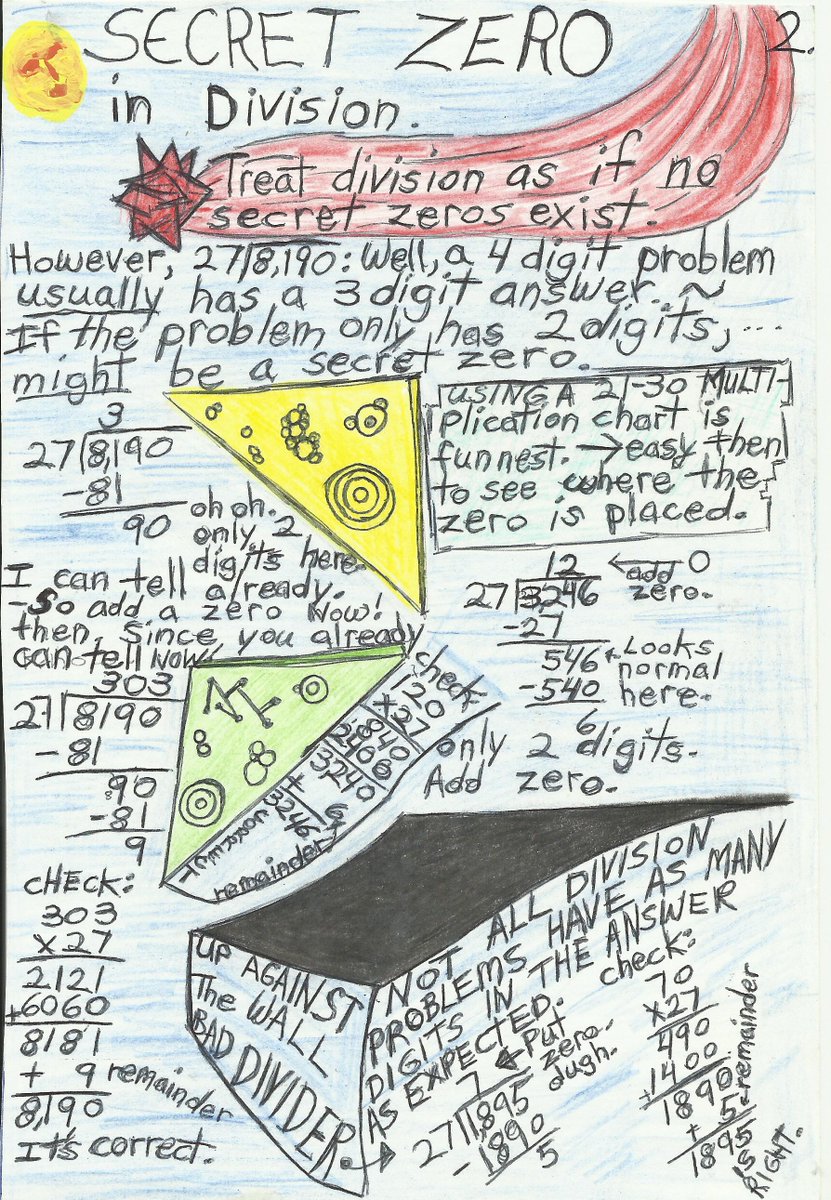 2.
SECRET ZERO
in Division.
Treat division as if no
secret zeros exist.
However, 27/8,190: Well, a 4 digit problem
usually has a 3 digit answer. ~
If the problem only has 2 digits, ...
might be a secret zero.
USING A 21-30 MULTI-
plication chart is
funnest. → easy then
to see where the
zero is placed.
3
27/8,190
-81
90
oh oh.
only 2
digits here.
I can tell already.
-So add a zero Now!
then, Since you already
can tell NOW!
303
27/8190
-81
90
-81
9
CHECK:
303
x27
2121
+6060
8181
+ 9 remainder
8,190
It's correct.
12 ← add 0
zero.
27/3246
-27
546 ← Looks
normal
-540 here.
6
only 2 digits.
Add zero.
check
120
x27
840
2400
3240
+ 6
3246
remainder
UP AGAINST
The WALL
BAD DIVIDER.
NOT ALL DIVISION
PROBLEMS HAVE AS MANY
DIGITS IN THE ANSWER
AS EXPECTED.
7 ← Put
zero.
dugh.
27/1,895
-1890
5
check:
70
x27
490
+1400
1890
+ 5 ← remainder
1895
IS
RIGHT.